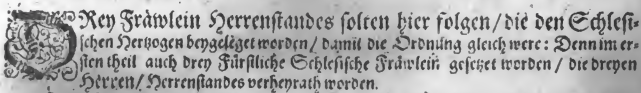 DRey Fräwlein Herrenstandes solten hier folgen / die den Schlesi-
schen Hertzogen beygeleget worden / damit die Ordnung gleich were: Denn im er-
sten theil auch drey Fürstliche Schlesische Fräwlein gesetzet worden / die dreyen
Herren / Herrenstandes verheyrath worden.